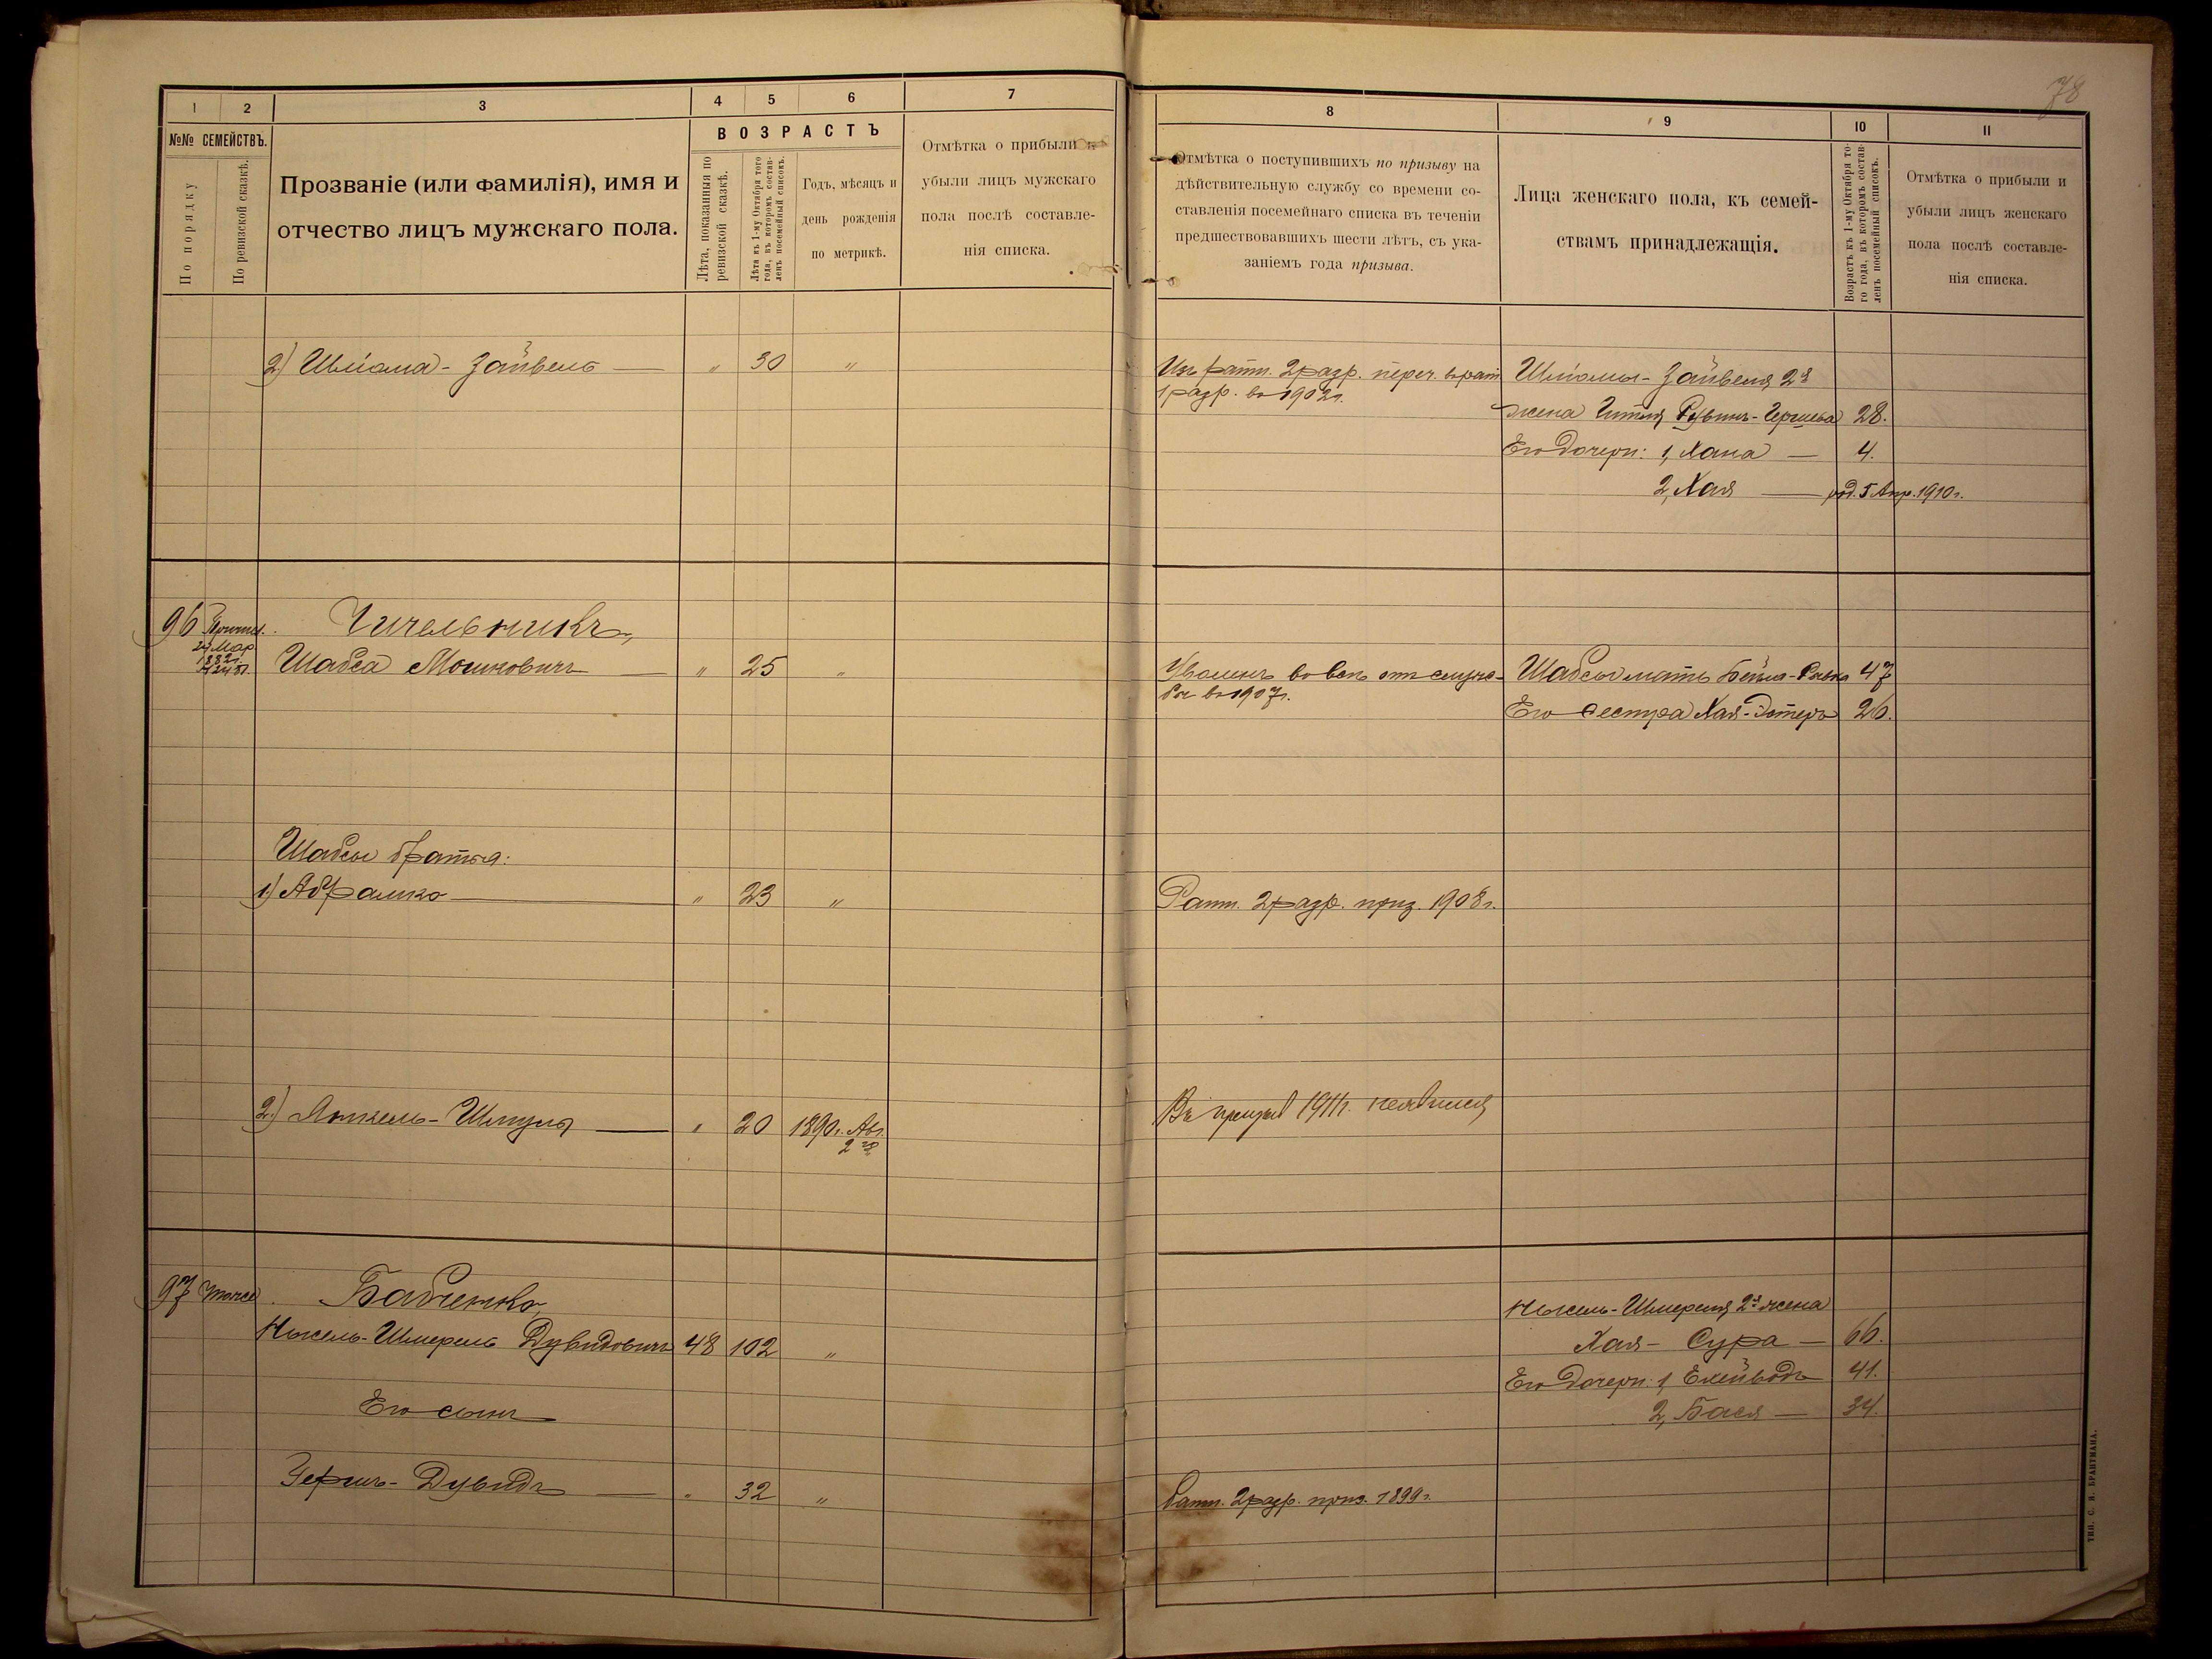 78
1
2
3
4
5
6
7
№№ СЕМЕЙСТВЪ.
По порядку
По ревизской сказкѣ.
Прозваніе (или фамилія), имя и
отчество лицъ мужскаго пола.
ВОЗРАСТЪ
Лѣта, показанныя по
ревизской сказкѣ.
Лѣта къ 1-му Октября того
года, въ которомъ состав-
ленъ посемейный списокъ.
Годъ, мѣсяцъ и
день рожденія
по метрикѣ.
Отмѣтка о прибыли и
убыли лицъ мужскаго
пола послѣ составле-
нія списка.
2) Шліома-Зайвель — " 30 "
96 Причисл.
24 Мар.
1882 г.
Чичельникъ,
Шабса Мошковичъ — " 25 "
Шабсы братья:
1) Абрамко — " 23 "
2) Янкель-Шмуль — " 20 1890 г. Авг.
2 го
97 тоже
Бабченко,
Нысель-Шмерель Дувидовичъ 48 102 "
Его сынъ
Гершъ-Дувидъ — " 32 "
8
9
10
11
Отмѣтка о поступившихъ по призыву на
дѣйствительную службу со времени со-
ставленія посемейнаго списка въ теченіи
предшествовавшихъ шести лѣтъ, съ ука-
заніемъ года призыва.
Лица женскаго пола, къ семей-
ствамъ принадлежащія.
Возрастъ къ 1-му Октября то-
го года, въ которомъ состав-
ленъ посемейный списокъ.
Отмѣтка о прибыли и
убыли лицъ женскаго
пола послѣ составле-
нія списка.
Изъ ратн. 2 разр. переч. въ рат.
1 разр. въ 1902 г.
Шліомы-Зайвеля 2я
жена Гитля Рувинъ-Гершева 28.
Его дочери: 1, Хана — 4.
2, Хая — род. 5 Апр. 1910 г.
Уволенъ во всег. отъ служ-
бы въ 1907 г.
Шабсы мать Бейла-Ривка 47
Его сестра Хая-Эстеръ 26.
Ратн. 2 разр. приз. 1908 г.
Въ призыв 1911 г. неявился
Нысель-Шмереля 2я жена
Хая-Сура — 66.
Его дочери: 1, Ехейводъ 41.
2, Бася — 34.
Ратн. 2 разр. приз. 1899 г.
ТИП. С. И. БРАНТМАНА.